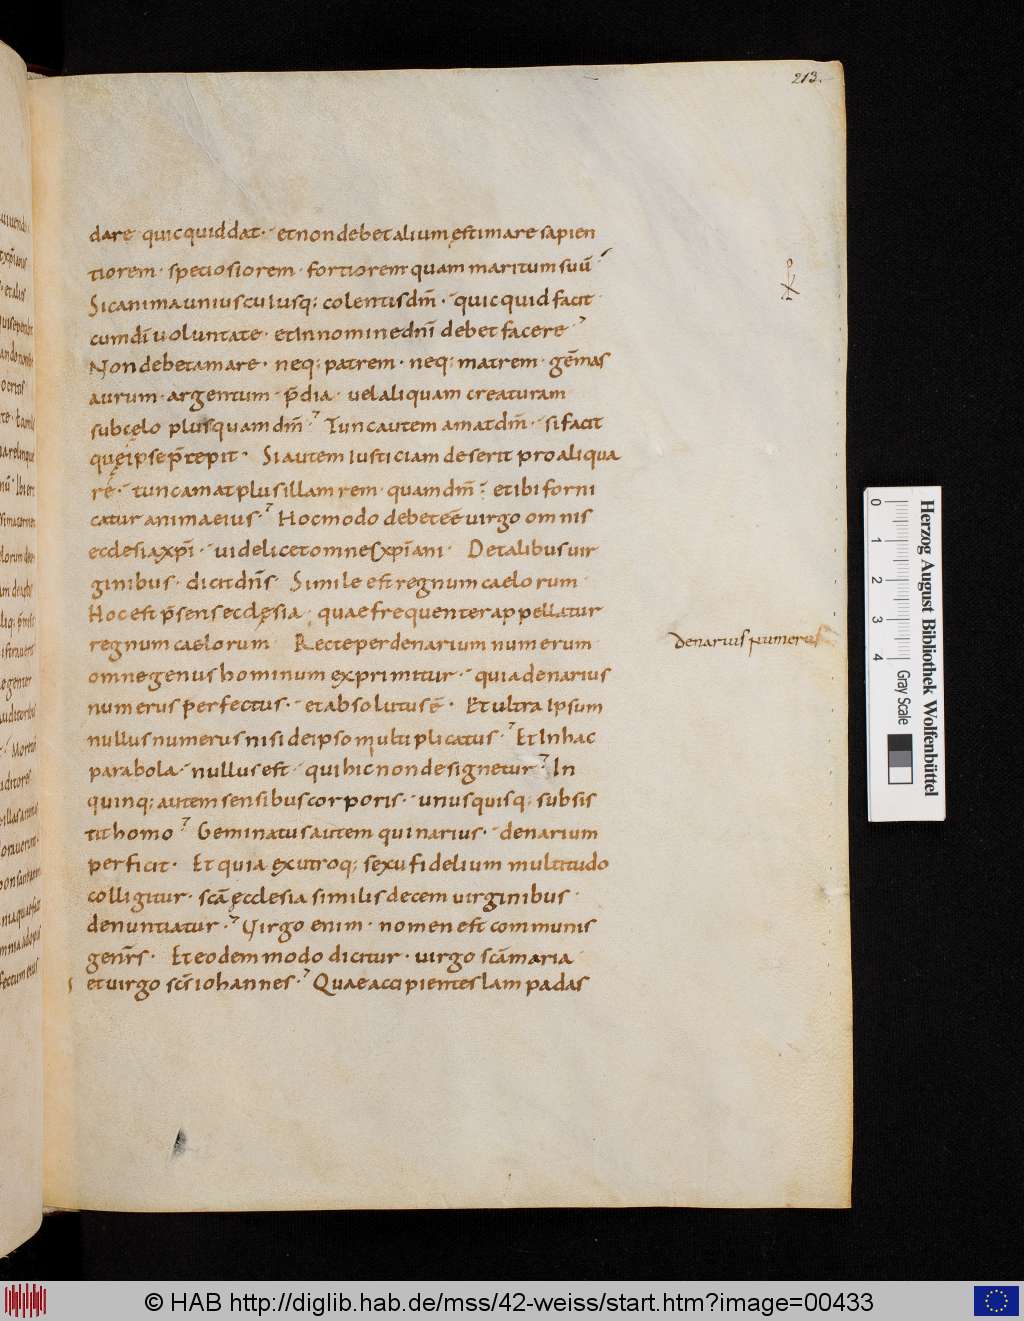 213.
dare quicquid dat· et non debet alium ęstimare sapien
tiorem· speciosiorem· fortiorem quam maritum suū
Sic anima unius cuiusq; colentis dm̄· quic quid facit
cum dī uoluntate· et In nomine dnī debet facere
Non debet amare· neq; patrem· neq; matrem· gēmas
aurum· argentum· p̄dia· uel aliquam creaturam
sub cęlo plus quam dm̄· Tunc autem amat dm̄· si facit
quę ipse p̄cepit· Si autem Iusticiam deserit pro aliqua
rē· tunc amat plus illam rem· quam dm̄· et ibi forni
catur anima eius· Hoc modo debet eē uirgo omnis
ecclesia xp̄i· uidelicet omnes xp̄iani· De talibus uir
ginibus· dicit dn̄s· Simile est regnum caelorum·
Hoc est p̄sens ecclęsia· quae frequenter appellatur
regnum caelorum· Recte per denarium numerum
omne genus hominum exprimitur· quia denarius
numerus perfectus· et absolutus ē· Et ultra Ipsum
nullus numerus nisi de ipso multiplicatus· Et In hac
parabola· nullus est· qui hic non designetur· In
quinq; autem sensibus corporis· unus quisq; subsis
tit homo· Geminatus autem quinarius· denarium
perficit· Et quia ex utroq; sexu fidelium multitudo
colligitur· scā ęcclesia similis decem uirginibus·
denuntiatur· Uirgo enim· nomen est communis
gen̄r̄s· Et eodem modo dicitur· uirgo scā maria
et uirgo scs̄ iohannes· Quae accipientes lampadas
Denarius numerus
Herzog August Bibliothek Wolfenbüttel
0 1 2 3 4 Gray Scale
© HAB http://diglib.hab.de/mss/42-weiss/start.htm?image=00433